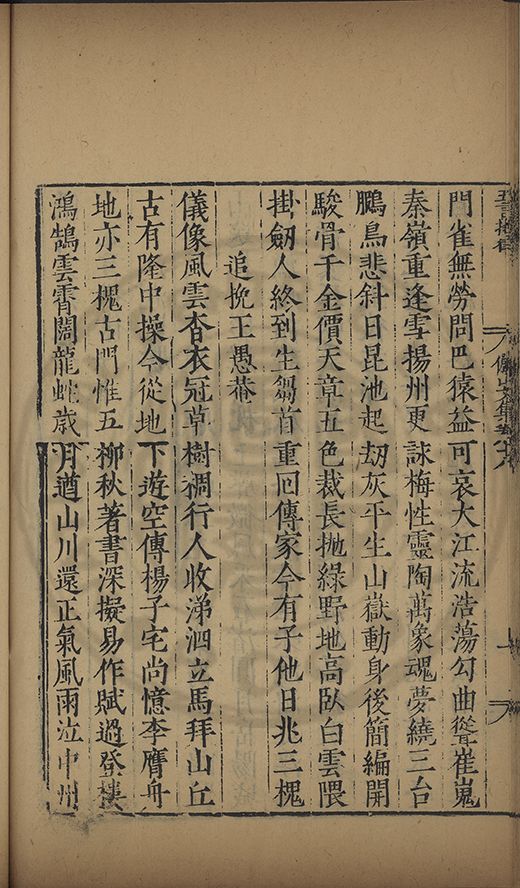 門雀無勞問巴猿益可哀大江流浩蕩勾曲從崔嵬
秦嶺重逢雪揚州更詠梅性靈陶萬象魂夢繞三台
鵬鳥悲斜日昆池起劫灰平生山嶽動身後簡編開
駿骨千金價天章五色裁長拋綠野地高臥白雲隈
掛劒人終到生芻首重回傳家今有子他日兆三槐
追挽王愚菴
儀像風雲杳衣冠草樹稠行人收涕泗立馬拜山丘
古有隆中操今從地下遊空傳楊子宅尚憶李膺舟
地亦三槐古門惟五柳秋著書深擬易作賦過登樓
鴻鵠雲霄闊龍蛇歲月遒山川還正氣風雨泣中州